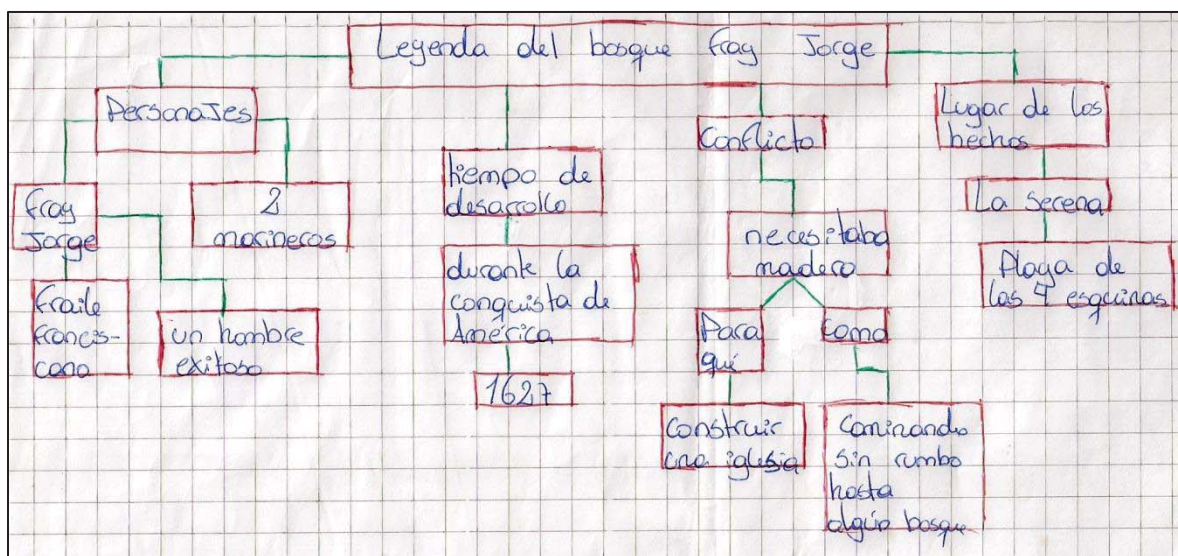 Leyenda del bosque fray Jorge
Personajes
fray
Jorge
2
marineros
fraile
francis-
cano
un hombre
exitoso
tiempo de
desarrollo
durante la
conquista de
América
1627
Conflicto
necesitaba
madera
Para
qué
como
Construir
una iglesia
Caminando
sin rumbo
hasta
algún bosque
Lugar de los
hechos
La Serena
Playa de
las 4 esquinas